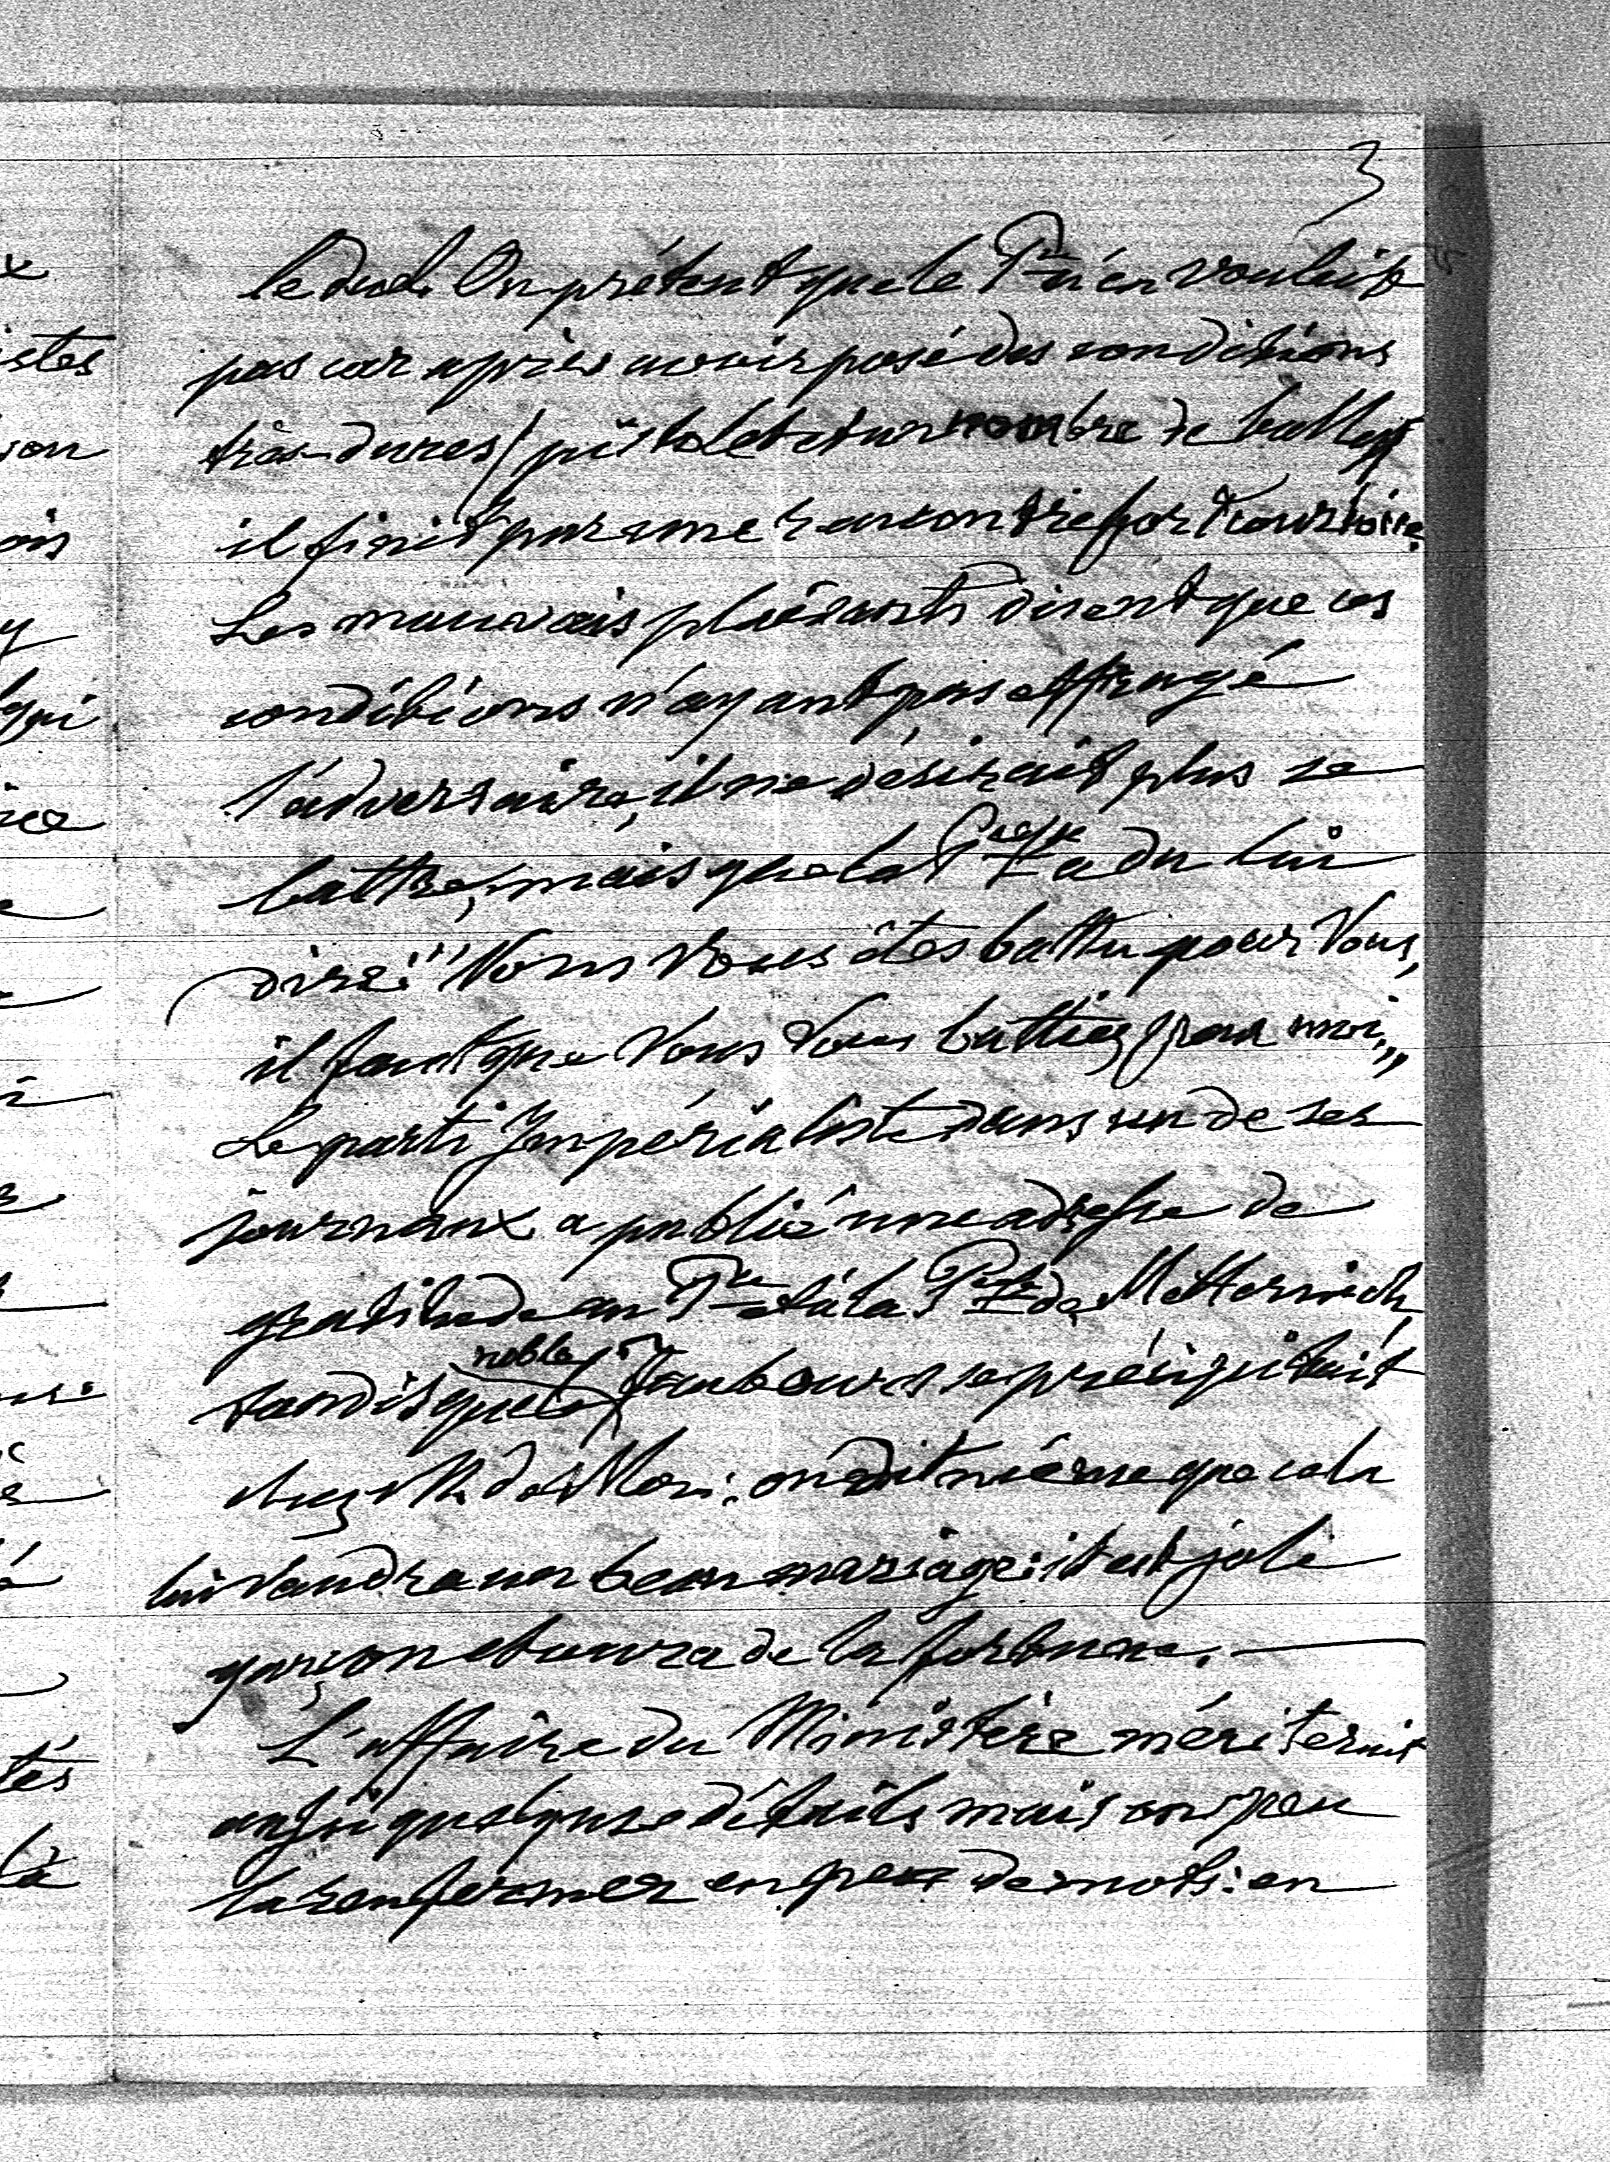 3
le duel. On prétent que le P^ce n'en voulait
pas car après avoir posé des conditions
très dures (pistolet et un nombre de balles)
il finit par une rencontre fort courtoise.
Les mauvais plaisants disent que ces
conditions n'ayant pas effrayé
l'adversaire, il ne désirait plus se
battre, mais que la P^cesse a du lui
dire: "Vous Vous êtes battu pour Vous,
il faut que Vous Vous battiez pour moi,"
Le parti Impérialiste dans un de ses
journaux a publié une adresse de
gratitude au P^ce et à la P^sse de Metternich,
tandis que le noble Faubourg se précipitait
chez M. de Mon: on dit même que cela
lui vaudra un beau mariage: il est joli
garçon et aura de la fortune. —
L'affaire du Ministère mériterait
aussi quelques détails mais on peu
la renfermer en peu de mots: en
istes
son
ois
y
qui
ice
tés
là